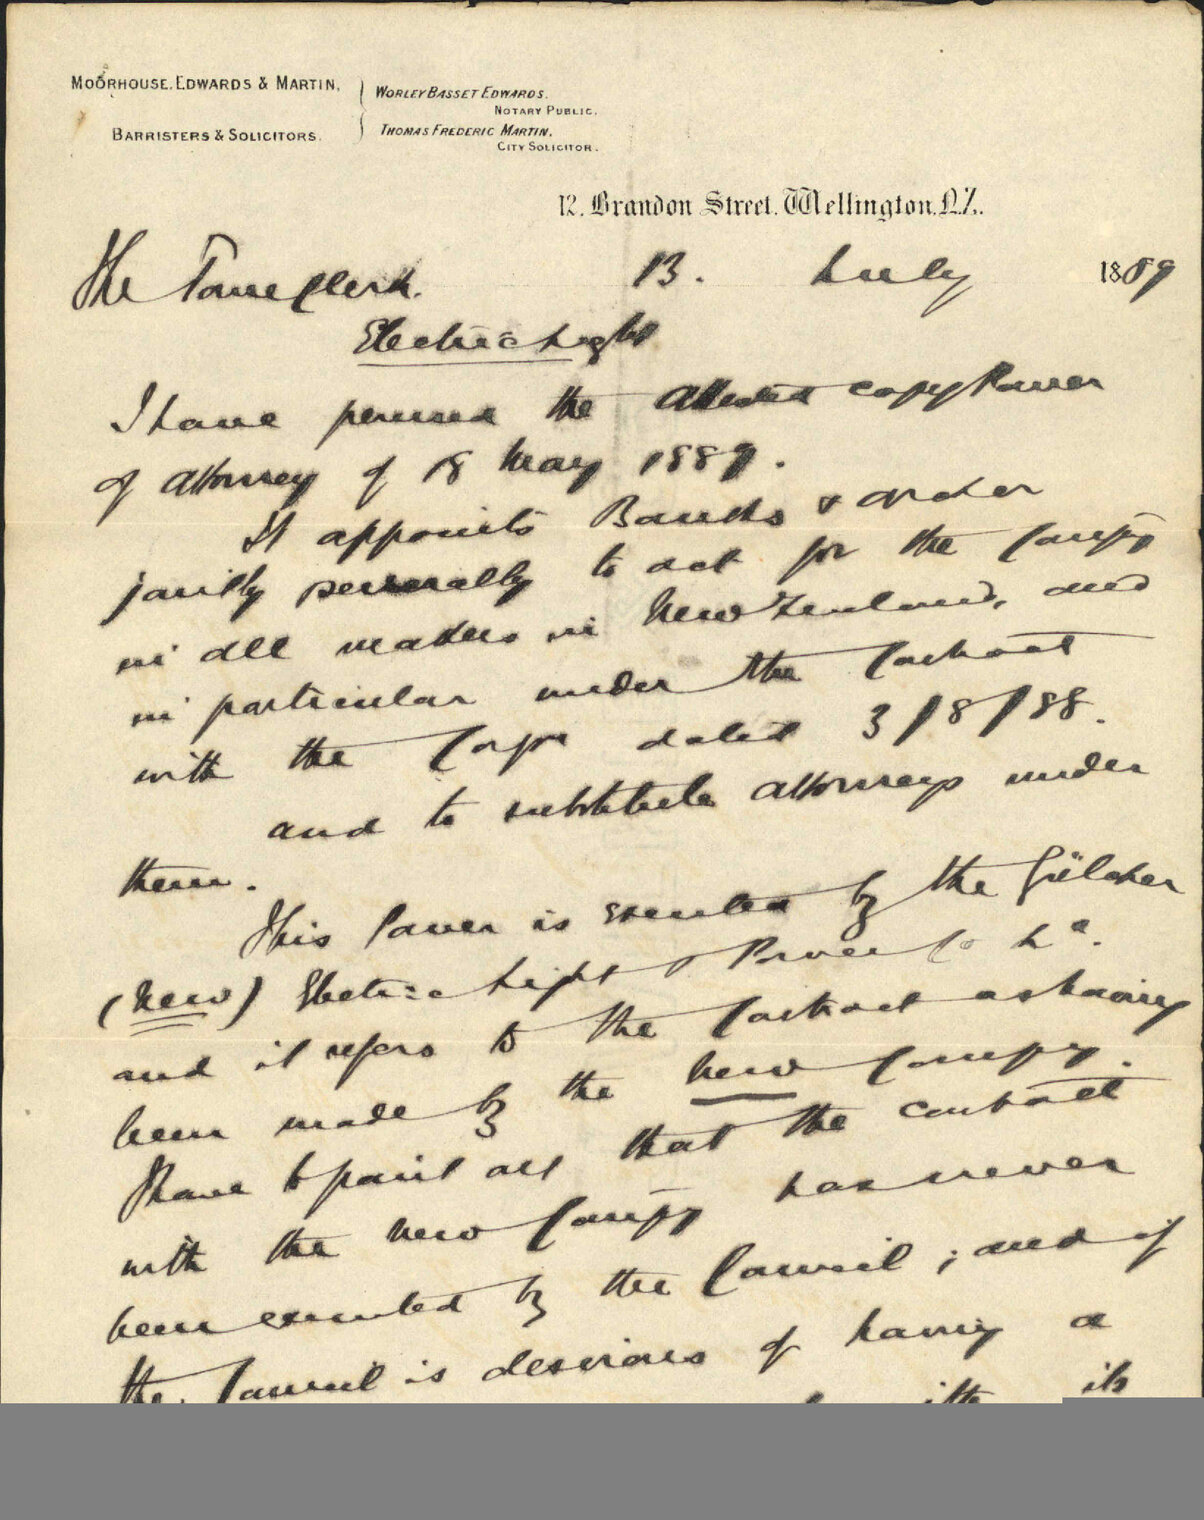 MOORHOUSE, EDWARDS & MARTIN,
BARRISTERS & SOLICITORS.
WORLEY BASSET EDWARDS.
NOTARY PUBLIC.
THOMAS FREDERIC MARTIN.
CITY SOLICITOR.
12, Brandon Street, Wellington, N.Z.
The Town Clerk. 13. July 1889
Electric Light
I have perused the attested copy Power
of attorney of 18 May 1889.
It appoints & Archer
jointly personally to act for the Compy
in all matters in New Zealand, and
in particular under the Contract
with the Corpn dated 3/8/88.
and to substitute attorneys under
them.
This Power is executed by the Gülcher
(New) Electric Light & Power Co Ld.
and it refers to the Contract as having
been made by the New Compy.
I have to point out that the contract
with the new Compy has never
been executed by the Council; and if
the Council is desirous of having a
its